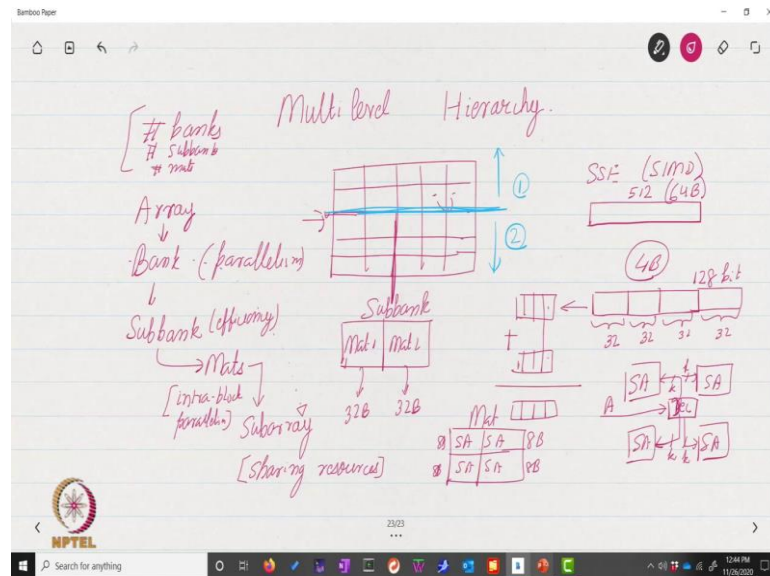 Bamboo Paper
Multi level Hierarchy.
# banks
# Subbank
# mats
Array
Bank (parallelism)
Subbank (efficiency)
Mats
[intra-block
parallelism]
Subarray
[Sharing resources]
i,j
①
②
Subbank
Mat1 Mat2
32B 32B
SSE (SIMD)
512 (64B)
4B
128 bit
32 32 32 32
+
Mat
SA SA 8B
SA SA 8B
SA k k SA
A
SA k k SA
NPTEL
23/23
Type here: Search for anything
12:44 PM
11/26/2020